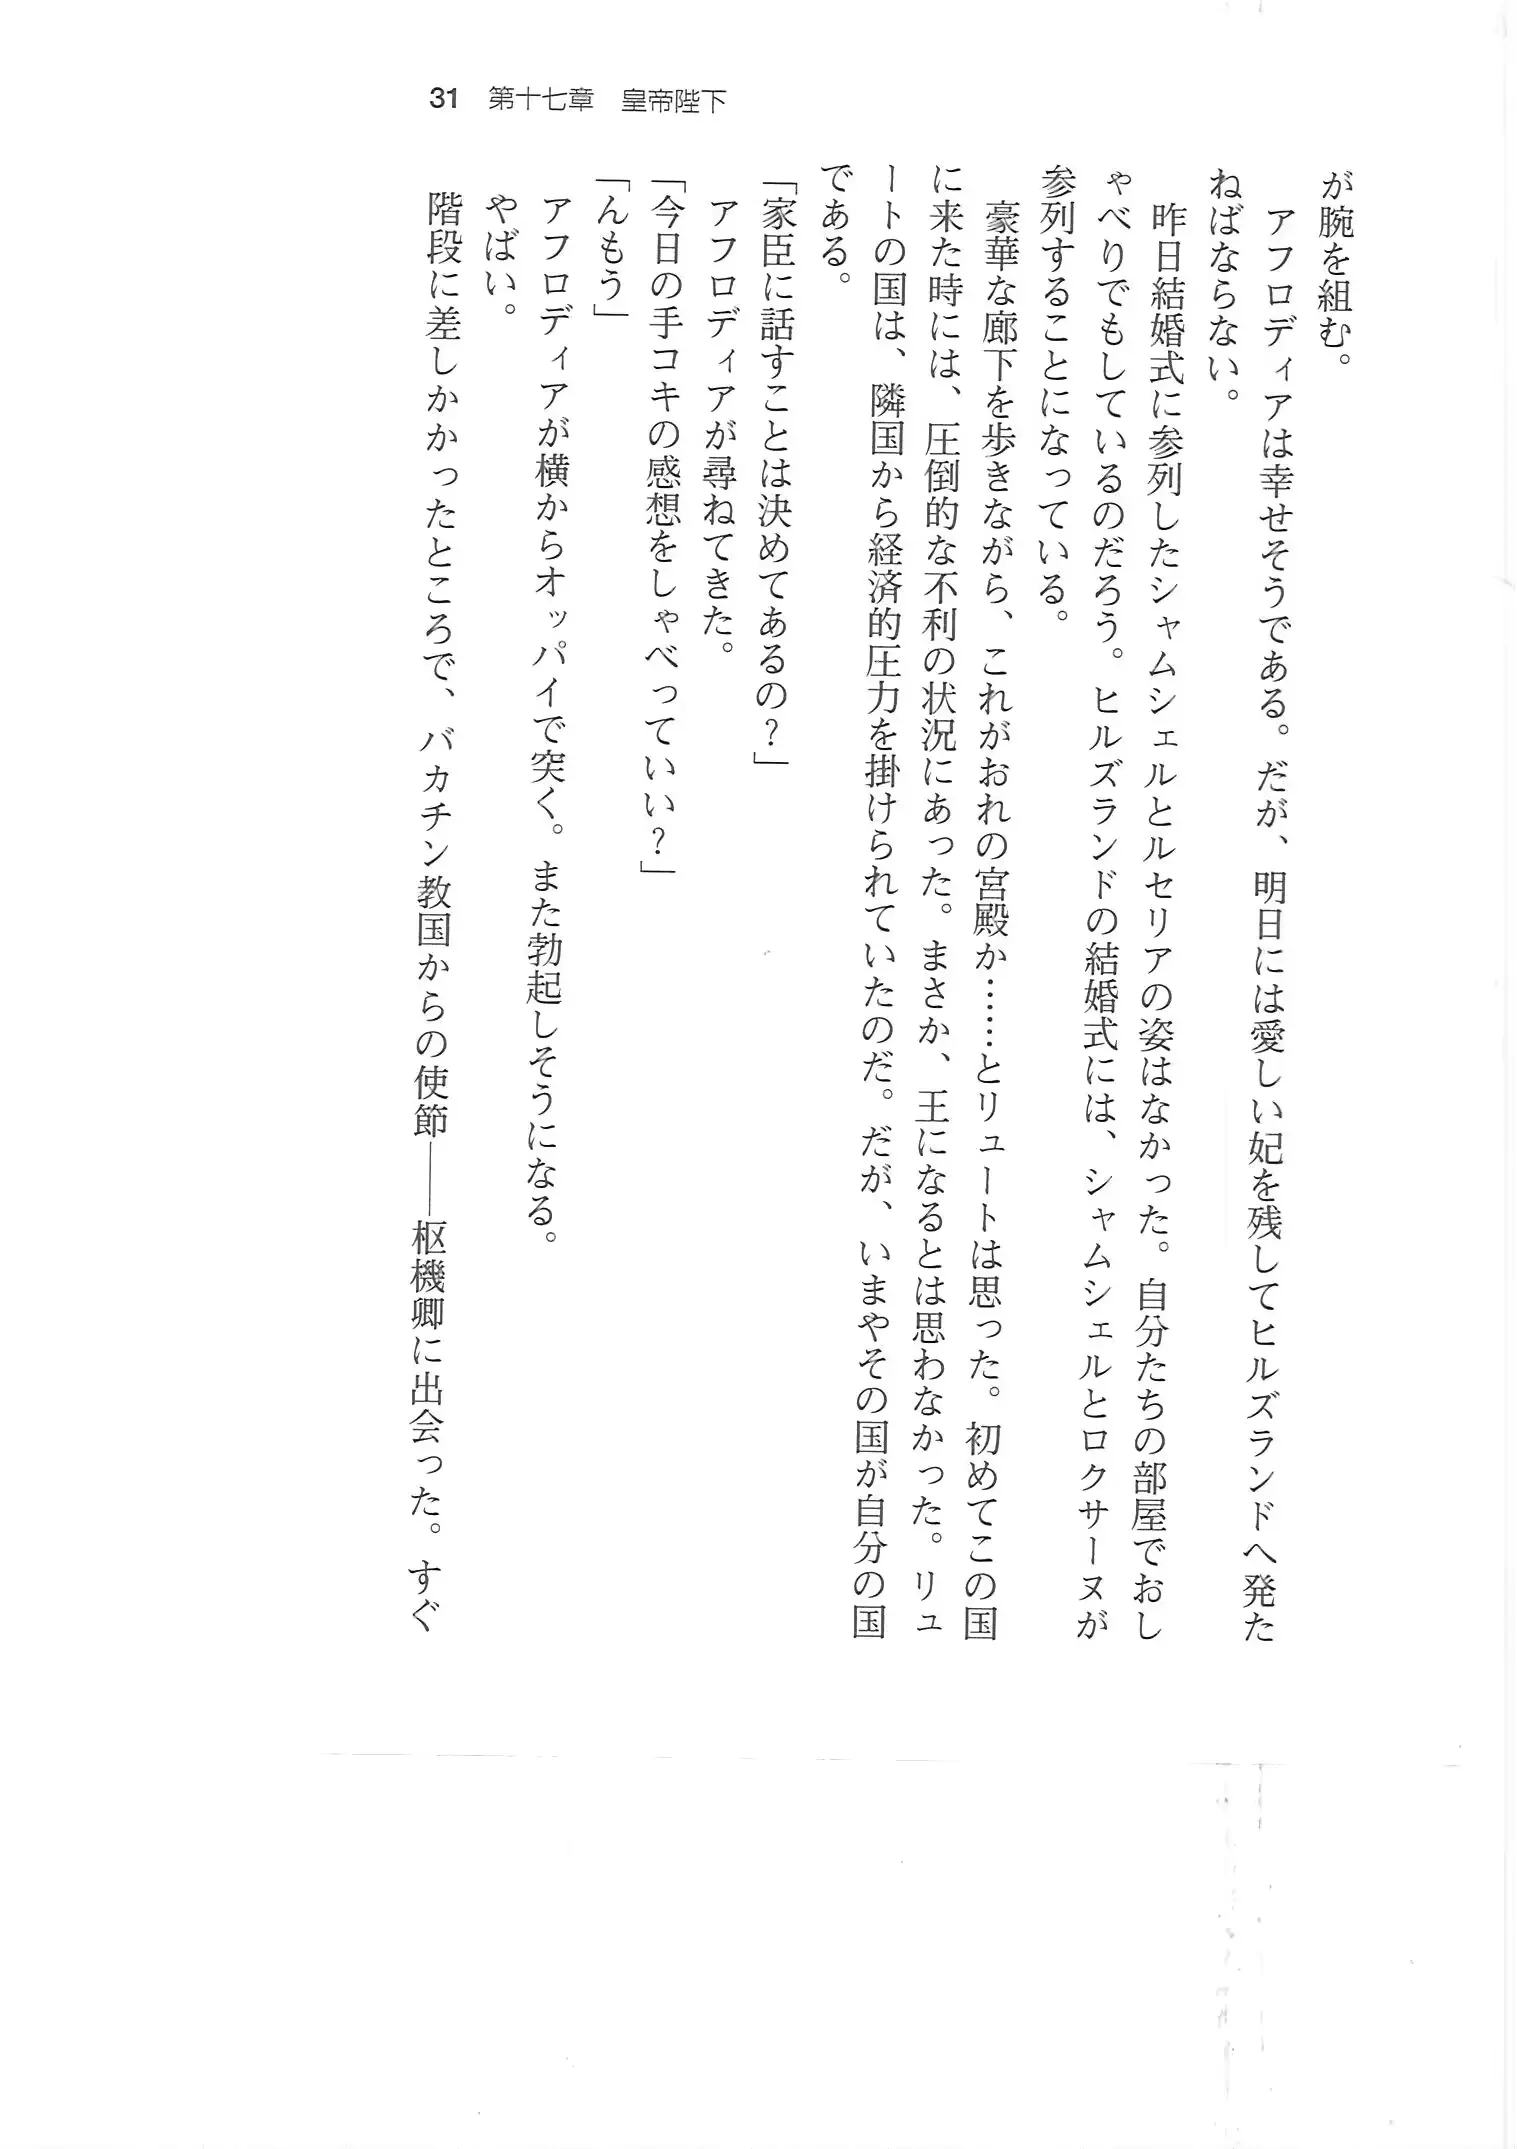 31 第十七章 皇帝陛下
が腕を組む。
アフロディアは幸せそうである。だが、明日には愛しい妃を残してヒルズランドへ発た
ねばならない。
昨日結婚式に参列したシャムシェルとルセリアの姿はなかった。自分たちの部屋でおし
ゃべりでもしているのだろう。ヒルズランドの結婚式には、シャムシェルとロクサーヌが
参列することになっている。
豪華な廊下を歩きながら、これがおれの宮殿か……とリュートは思った。初めてこの国
に来た時には、圧倒的な不利の状況にあった。まさか、王になるとは思わなかった。リュ
ートの国は、隣国から経済的圧力を掛けられていたのだ。だが、いまやその国が自分の国
である。
「家臣に話すことは決めてあるの？」
アフロディアが尋ねてきた。
「今日の手コキの感想をしゃべっていい？」
「んもう」
アフロディアが横からオッパイで突く。また勃起しそうになる。
やばい。
階段に差しかかったところで、バカチン教国からの使節――枢機卿に出会った。すぐ